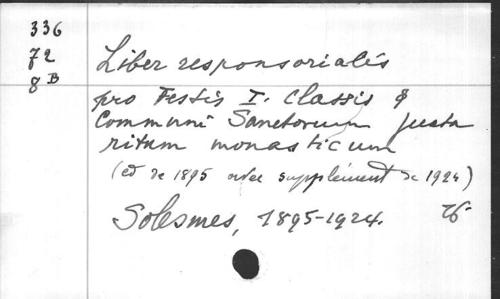 336
72
8 B
Liber responsorialis
pro Festis I. Classis &
Communi Sanctorum juxta
ritum monasticum
(éd de 1895 avec supplément de 1924)
Solesmes, 1895-1924.